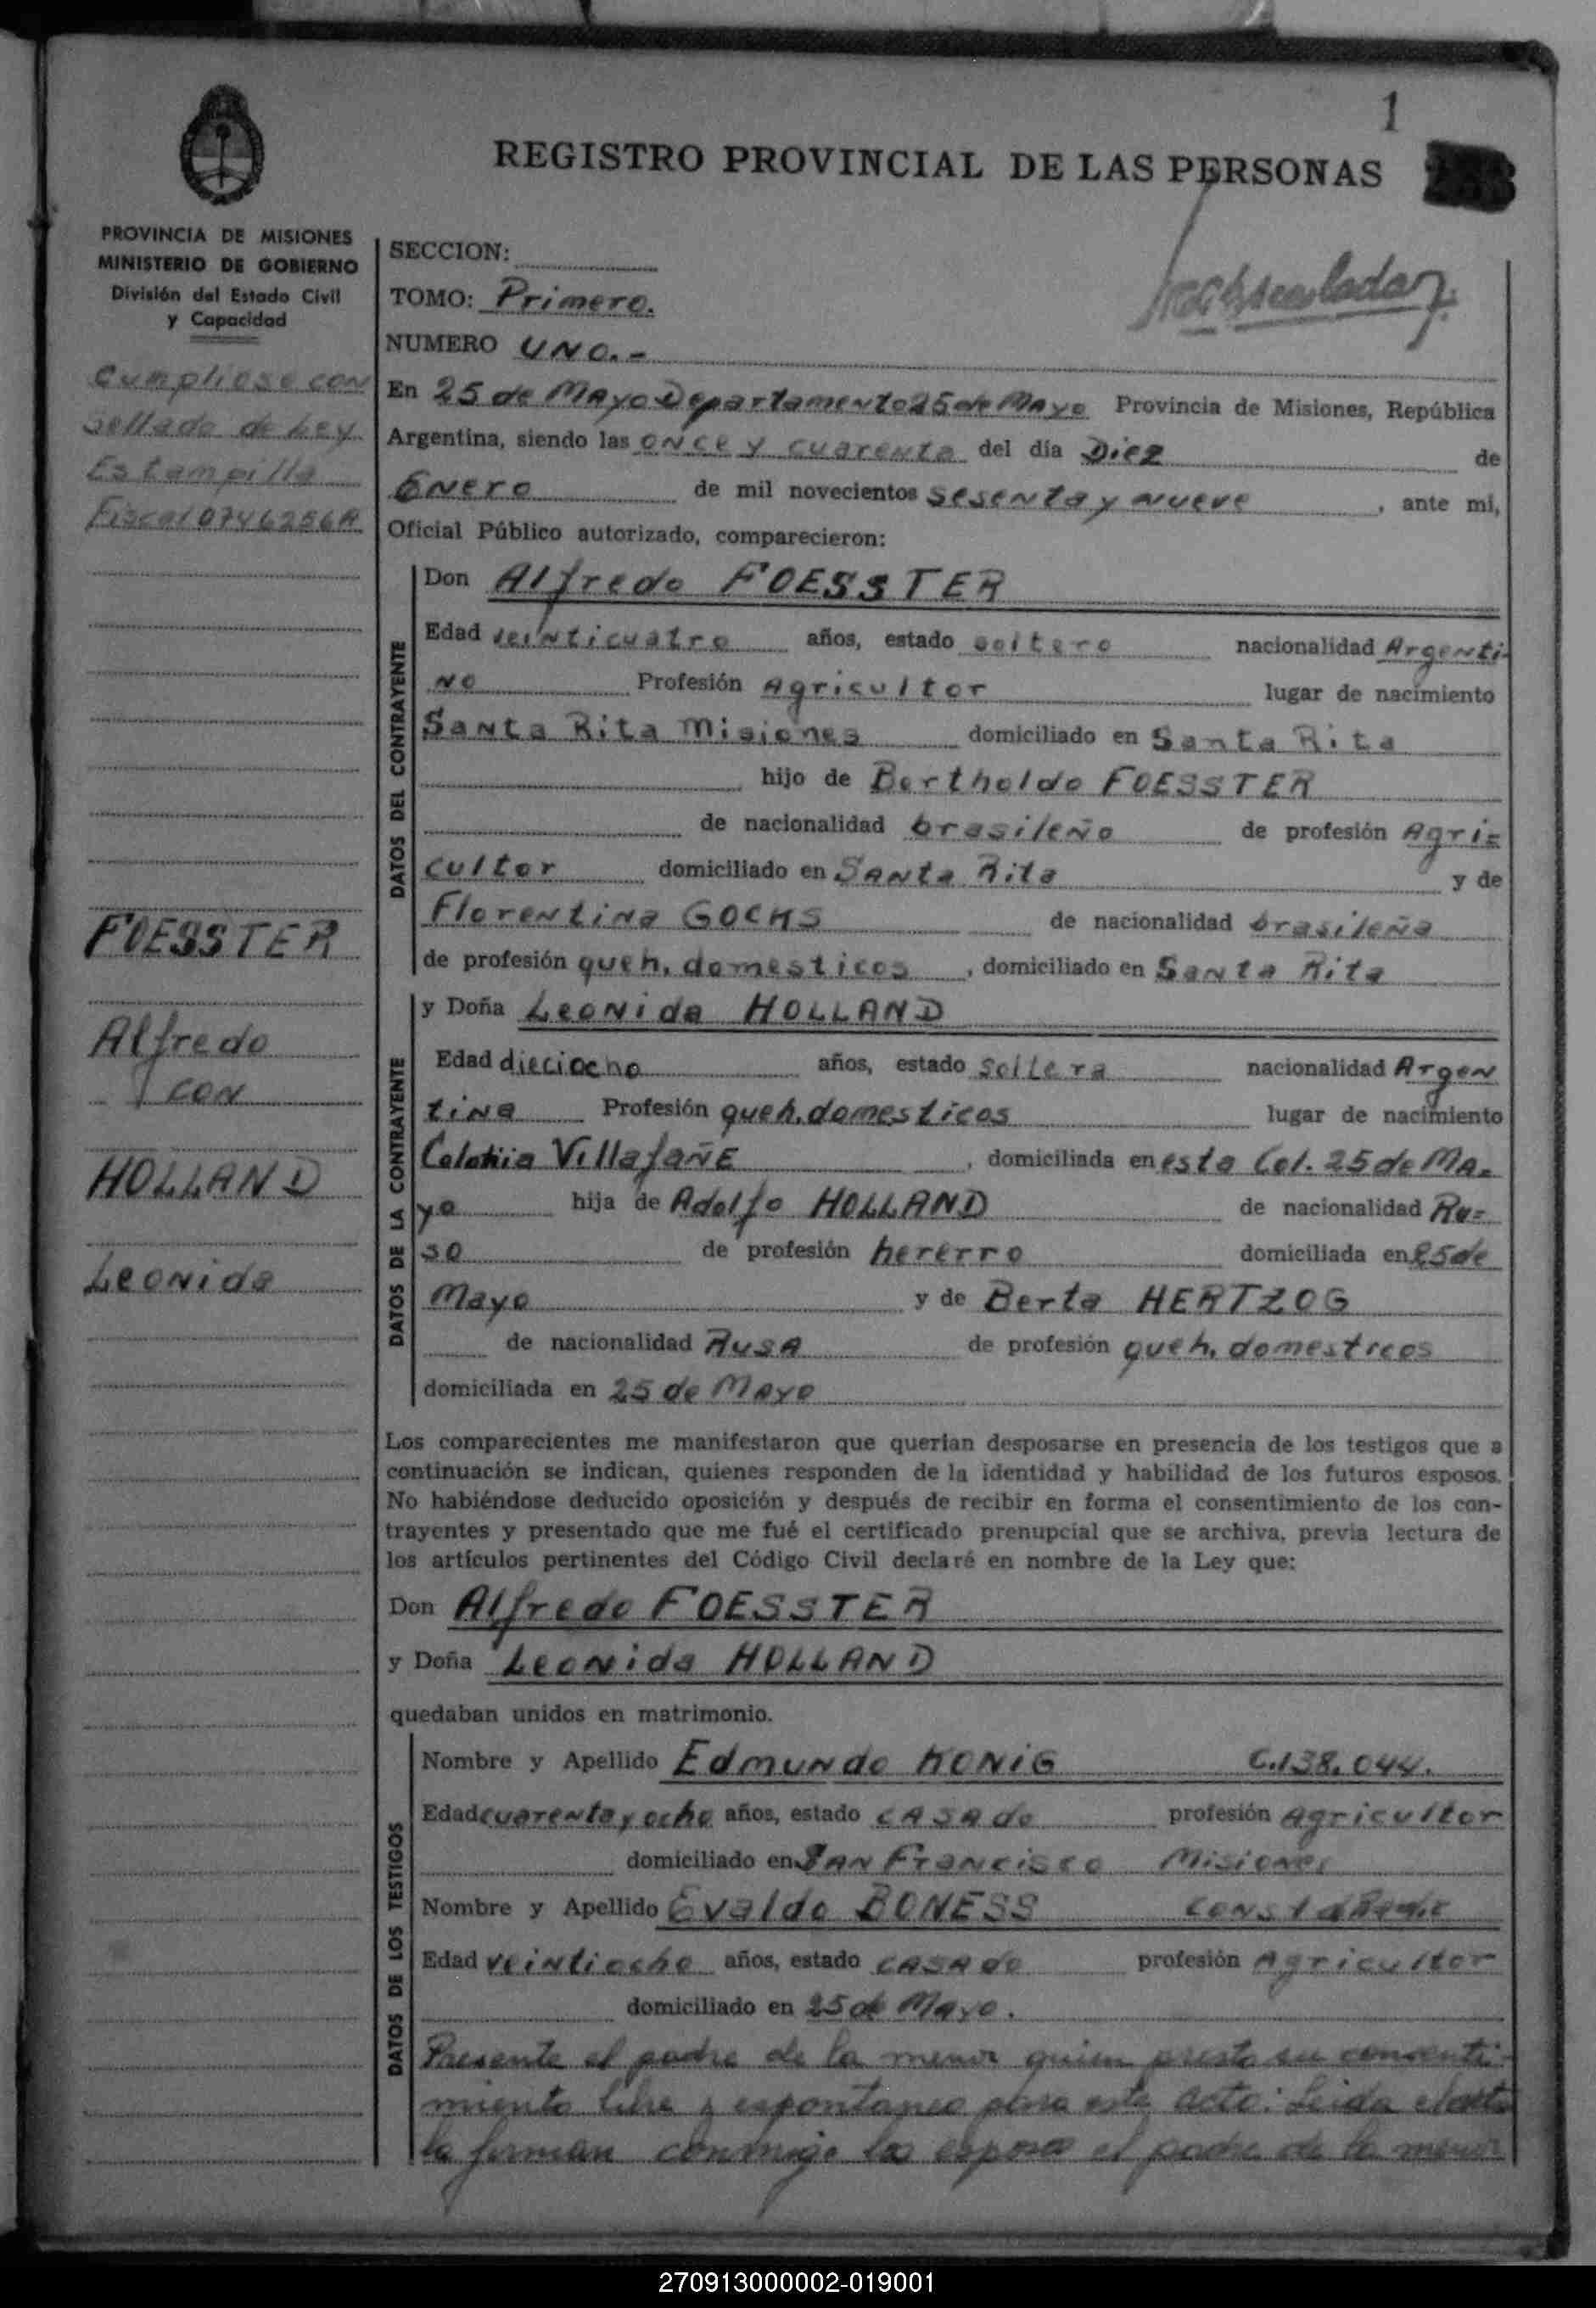 1
REGISTRO PROVINCIAL DE LAS PERSONAS
PROVINCIA DE MISIONES
MINISTERIO DE GOBIERNO
División del Estado Civil
y Capacidad
Cumpliose con
Sellado de Ley
Estampilla
Fiscal 0746256A
FOESSTER
Alfredo
CON
HOLLAND
Leonida
SECCION:
TOMO: Primero.
NUMERO UNO.-
En 25 de Mayo Departamento 25 de Mayo Provincia de Misiones, República
Argentina, siendo las once y cuarenta del día Diez de
Enero de mil novecientos sesenta y nueve, ante mi,
Oficial Público autorizado, comparecieron:
DATOS DEL CONTRAYENTE
Don Alfredo FOESSTER
Edad veinticuatro años, estado soltero nacionalidad Argenti-
no Profesión Agricultor lugar de nacimiento
Santa Rita Misiones domiciliado en Santa Rita
hijo de Bertholdo FOESSTER
de nacionalidad brasileño de profesión Agri=
cultor domiciliado en Santa Rita y de
Florentina GOCHS de nacionalidad brasileña
de profesión queh. domesticos, domiciliado en Santa Rita
DATOS DE LA CONTRAYENTE
y Doña Leonida HOLLAND
Edad dieciocho años, estado soltera nacionalidad Argen
tina Profesión queh. domesticos lugar de nacimiento
Colonia Villafañe, domiciliada en esta Col. 25 de Ma-
yo hija de Adolfo HOLLAND de nacionalidad Ru=
so de profesión hererro domiciliada en 25 de
Mayo y de Berta HERTZOG
de nacionalidad Rusa de profesión queh. domesticos
domiciliada en 25 de Mayo
Los comparecientes me manifestaron que querían desposarse en presencia de los testigos que a
continuación se indican, quienes responden de la identidad y habilidad de los futuros esposos.
No habiéndose deducido oposición y después de recibir en forma el consentimiento de los con-
trayentes y presentado que me fué el certificado prenupcial que se archiva, previa lectura de
los artículos pertinentes del Código Civil declaré en nombre de la Ley que:
Don Alfredo FOESSTER
y Doña Leonida HOLLAND
quedaban unidos en matrimonio.
DATOS DE LOS TESTIGOS
Nombre y Apellido Edmundo KONIG C.138.044.
Edad cuarenta y ocho años, estado casado profesión Agricultor
domiciliado en San Francisco Misiones
Nombre y Apellido Evaldo BONESS
Edad veintiocho años, estado casado profesión Agricultor
domiciliado en 25 de Mayo.
Presente el padre de la menor quien presta su consenti-
miento libre y espontaneo para este acto: Leida el acta
la firman conmigo los esposos el padre de la menor
270913000002-019001